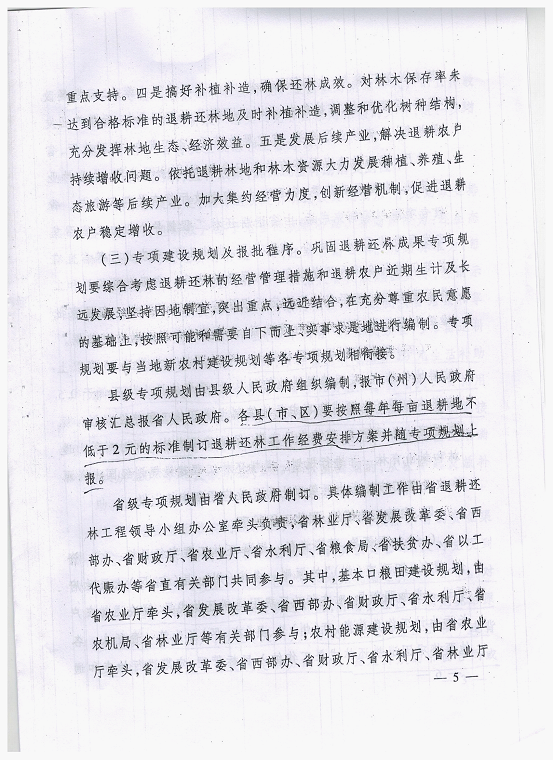 重点支持。四是搞好补植补造，确保还林成效。对林木保存率未
达到合格标准的退耕还林地及时补植补造，调整和优化树种结构，
充分发挥林地生态、经济效益。五是发展后续产业，解决退耕农户
持续增收问题。依托退耕林地和林木资源大力发展种植、养殖、生
态旅游等后续产业。加大集约经营力度，创新经营机制，促进退耕
农户稳定增收。
(三)专项建设规划及报批程序。巩固退耕还林成果专项规
划要综合考虑退耕还林的经营管理措施和退耕农户近期生计及长
远发展，坚持因地制宜，突出重点，远近结合，在充分尊重农民意愿
的基础上，按照可能和需要自下而上、实事求是地进行编制。专项
规划要与当地新农村建设规划等各专项规划相衔接。
县级专项规划由县级人民政府组织编制，报市(州)人民政府
审核汇总报省人民政府。各县(市、区)要按照每年每亩退耕地不
低于2元的标准制订退耕还林工作经费安排方案并随专项规划上
报。
省级专项规划由省人民政府制订。具体编制工作由省退耕还
林工程领导小组办公室牵头负责，省林业厅、省发展改革委、省西
部办、省财政厅、省农业厅、省水利厅、省粮食局、省扶贫办、省以工
代赈办等省直有关部门共同参与。其中，基本口粮田建设规划，由
省农业厅牵头，省发展改革委、省西部办、省财政厅、省水利厅、省
农机局、省林业厅等有关部门参与；农村能源建设规划，由省农业
厅牵头，省发展改革委、省西部办、省财政厅、省水利厅、省林业厅
— 5 —